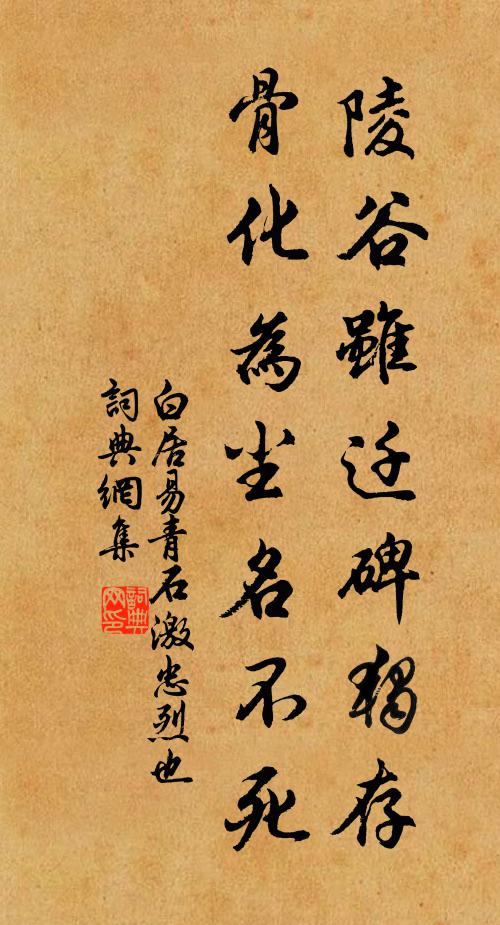 陵谷雖迁碑獨存
骨化為尘名不死
白居易青石激忠烈也
詞典網集
詞典网印